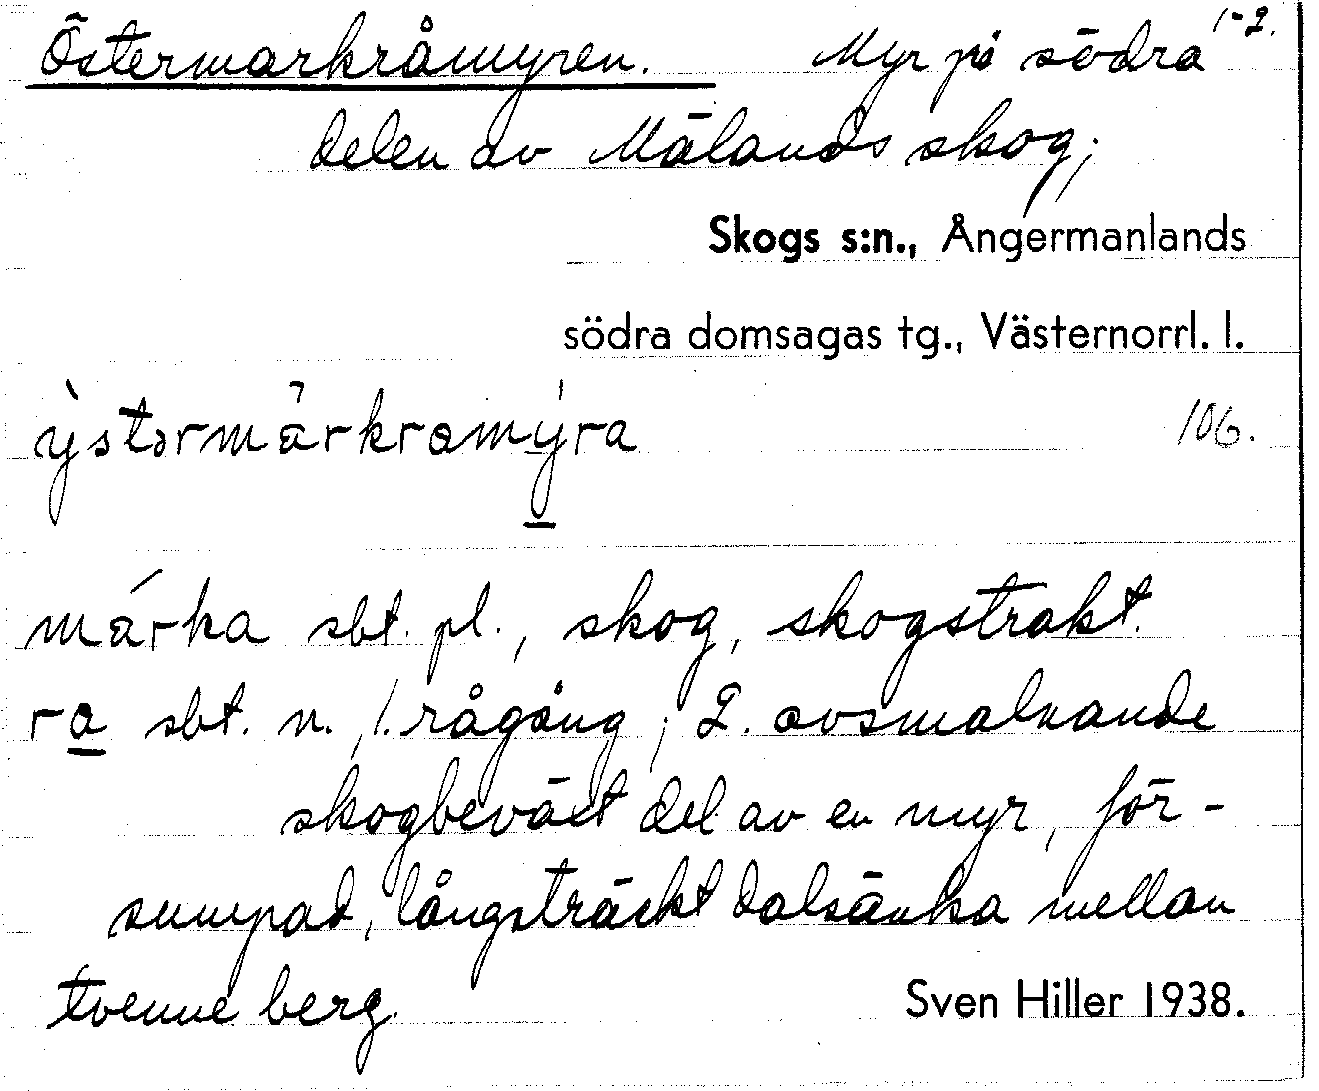 Östermarkråmyren. Myr på södra 1-2.
delen av Mälands skog;
Skogs s:n., Ångermanlands
södra domsagas tg., Västernorrl. l.
ỳstərmàrkramýra 106.
márka sbt. pl., skog, skogstrakt.
ra sbt. n., 1. rågång; 2. avsmalnande
skogbeväxt del av en myr, för-
sumpad, långsträckt dalsänka mellan
tvenne berg.
Sven Hiller 1938.